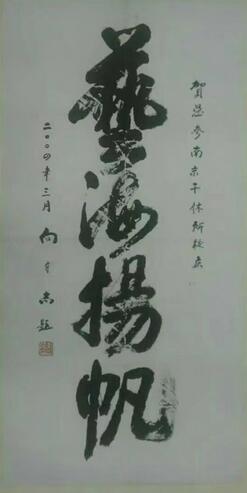 賀总参南京干休所
藝海揚帆
二〇〇四年三月 向守志題